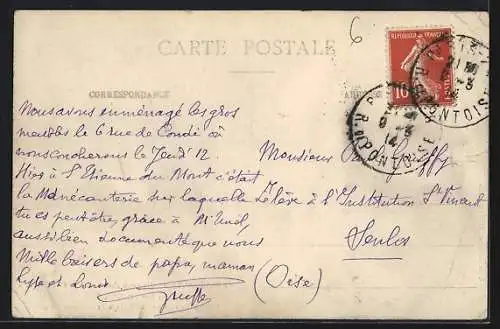 6
CARTE POSTALE
REPUBLIQUE FRANÇAISE
10
CORRESPONDANCE
Nous avons emménagé les gros
meubles le 6 rue de Condé où
nous coucherons le Jeudi 12.
Hier à St Etienne du Mont c'était
la Manécanterie sur laquelle
tu es peut être, grâce à
aussi bien documenté que nous
Mille baisers de papa, maman
et
Monsieur
Elève à l'Institution St Vincent
Senlis
(Oise)
PARIS
R. DE PONTOISE
9 - 3
14